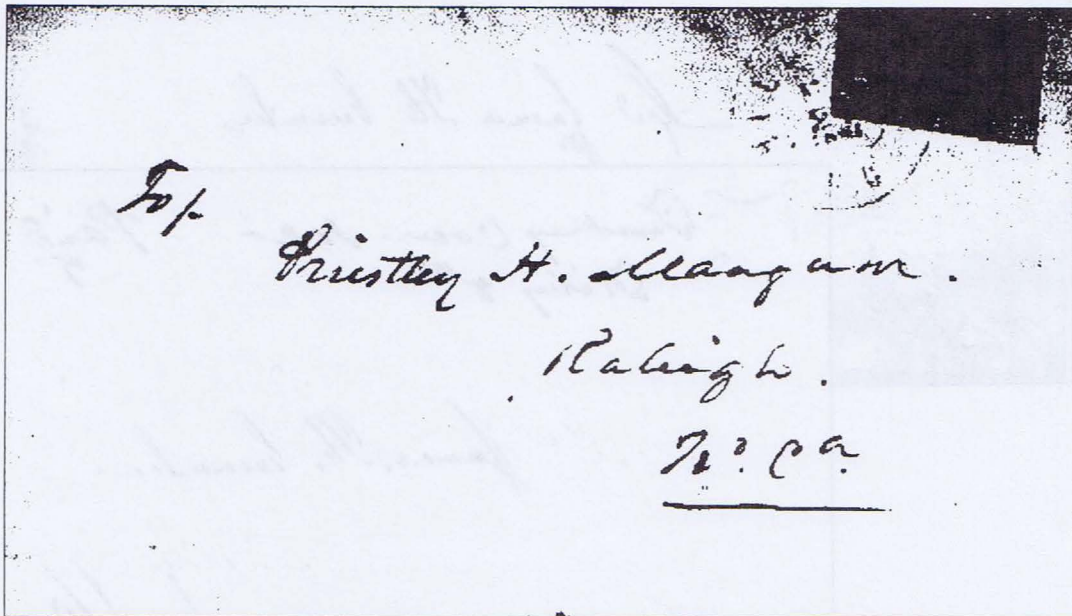 To/.
Priestley H. Mangum.
Raleigh.
No. Ca.